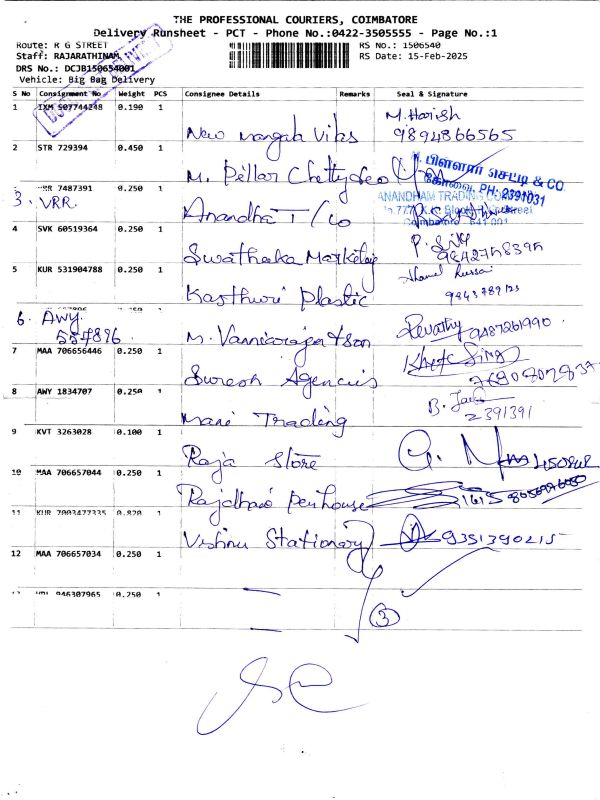 THE PROFESSIONAL COURIERS, COIMBATORE
Delivery Runsheet - PCT - Phone No.:0422-3505555 - Page No.:1
Route: R G STREET
RS No.: 1506540
Staff: RAJARATHINAM
RS Date: 15-Feb-2025
DRS No.: DCJB150654001
Vehicle: Big Bag Delivery
S No Consignment No Weight PCS Consignee Details Remarks Seal & Signature
1 IXM 507744248 0.190 1
New mangala Vilas
M. Harish
9894866565
2 STR 729394 0.450 1
M. Pillar Chetty & co
M. பிள்ளார் செட்டி & CO
கோவை. PH: 2391031
7487391 0.250 1
3. VRR.
Anandha T/co
ANANDHAM TRADING CO
Coimbatore - 641 001
4 SVK 60519364 0.250 1
Swathaka Marketing
P. Siva
9842758395
5 KUR 531904788 0.250 1
Kasthuri Plastic
6. Awy.
557896
M. Vanniaraja & son
Revathy 9487261990
7 MAA 706656446 0.250 1
Suresh Agencies
8 AWY 1834707 0.250 1
Mani Trading
2391391
9 KVT 3263028 0.100 1
Raja Store
10 MAA 706657044 0.250 1
Rajdhani Penhouse
11 KUR 7003477335 0.820 1
Vishnu Stationary
9351390215
12 MAA 706657034 0.250 1
946307965 0.250 1
3